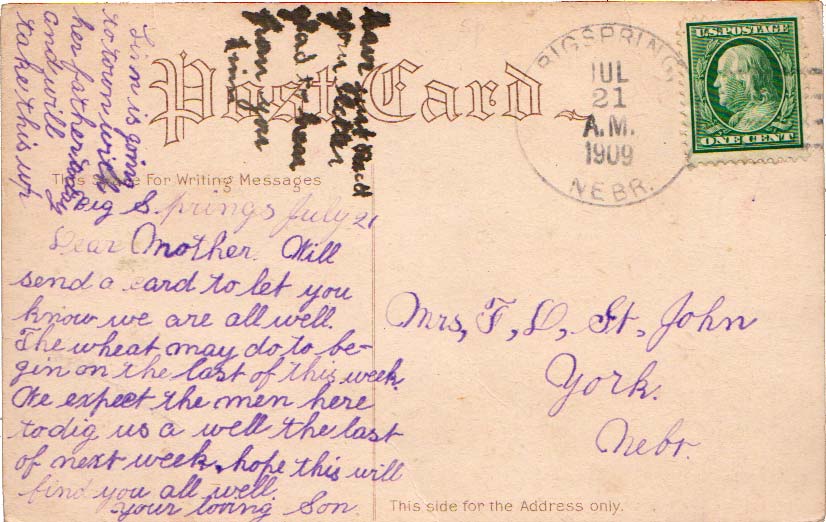 is going
to town with
her father
and will
take this up
Have just
your letter
glad to hear
from you
Post Card
BIGSPRING
JUL
21
A.M.
1909
NEBR.
U.S. POSTAGE
ONE CENT
This Space For Writing Messages
Big Springs July 21
Dear Mother. Will
send a card to let you
know we are all well.
The wheat may do to be-
gin on the last of this week.
We expect the men here
to dig us a well the last
of next week. hope this will
find you all well.
your loving Son.
Mrs, F, D, St, John
York.
Nebr.
This side for the Address only.